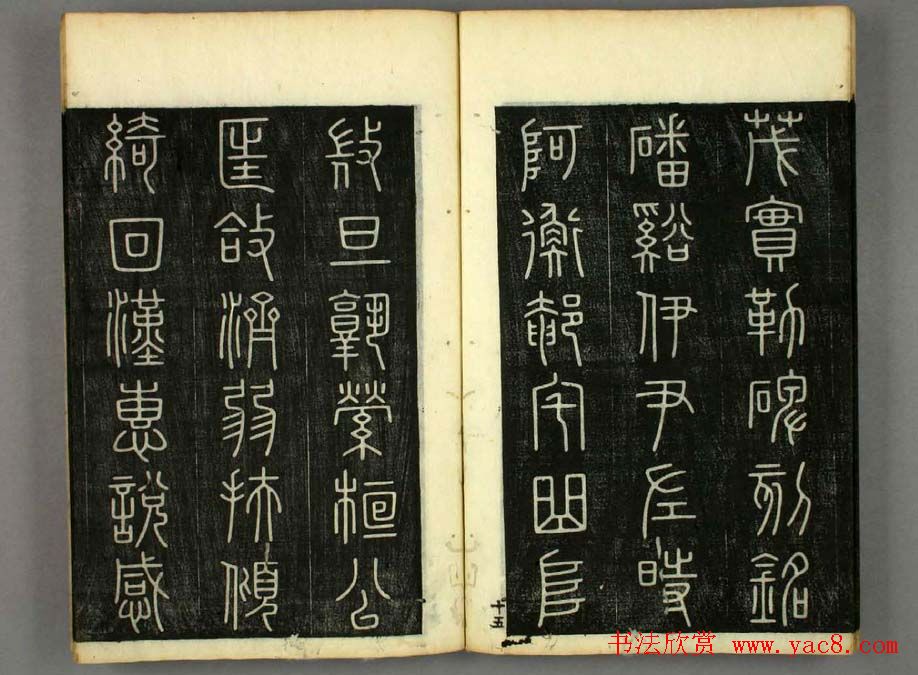 茂實勒碑刻銘
磻谿伊尹佐時
阿衡奄宅曲阜
微旦孰營桓公
匡合濟弱扶傾
綺回漢惠說感
十五
书法欣赏 www.yac8.com